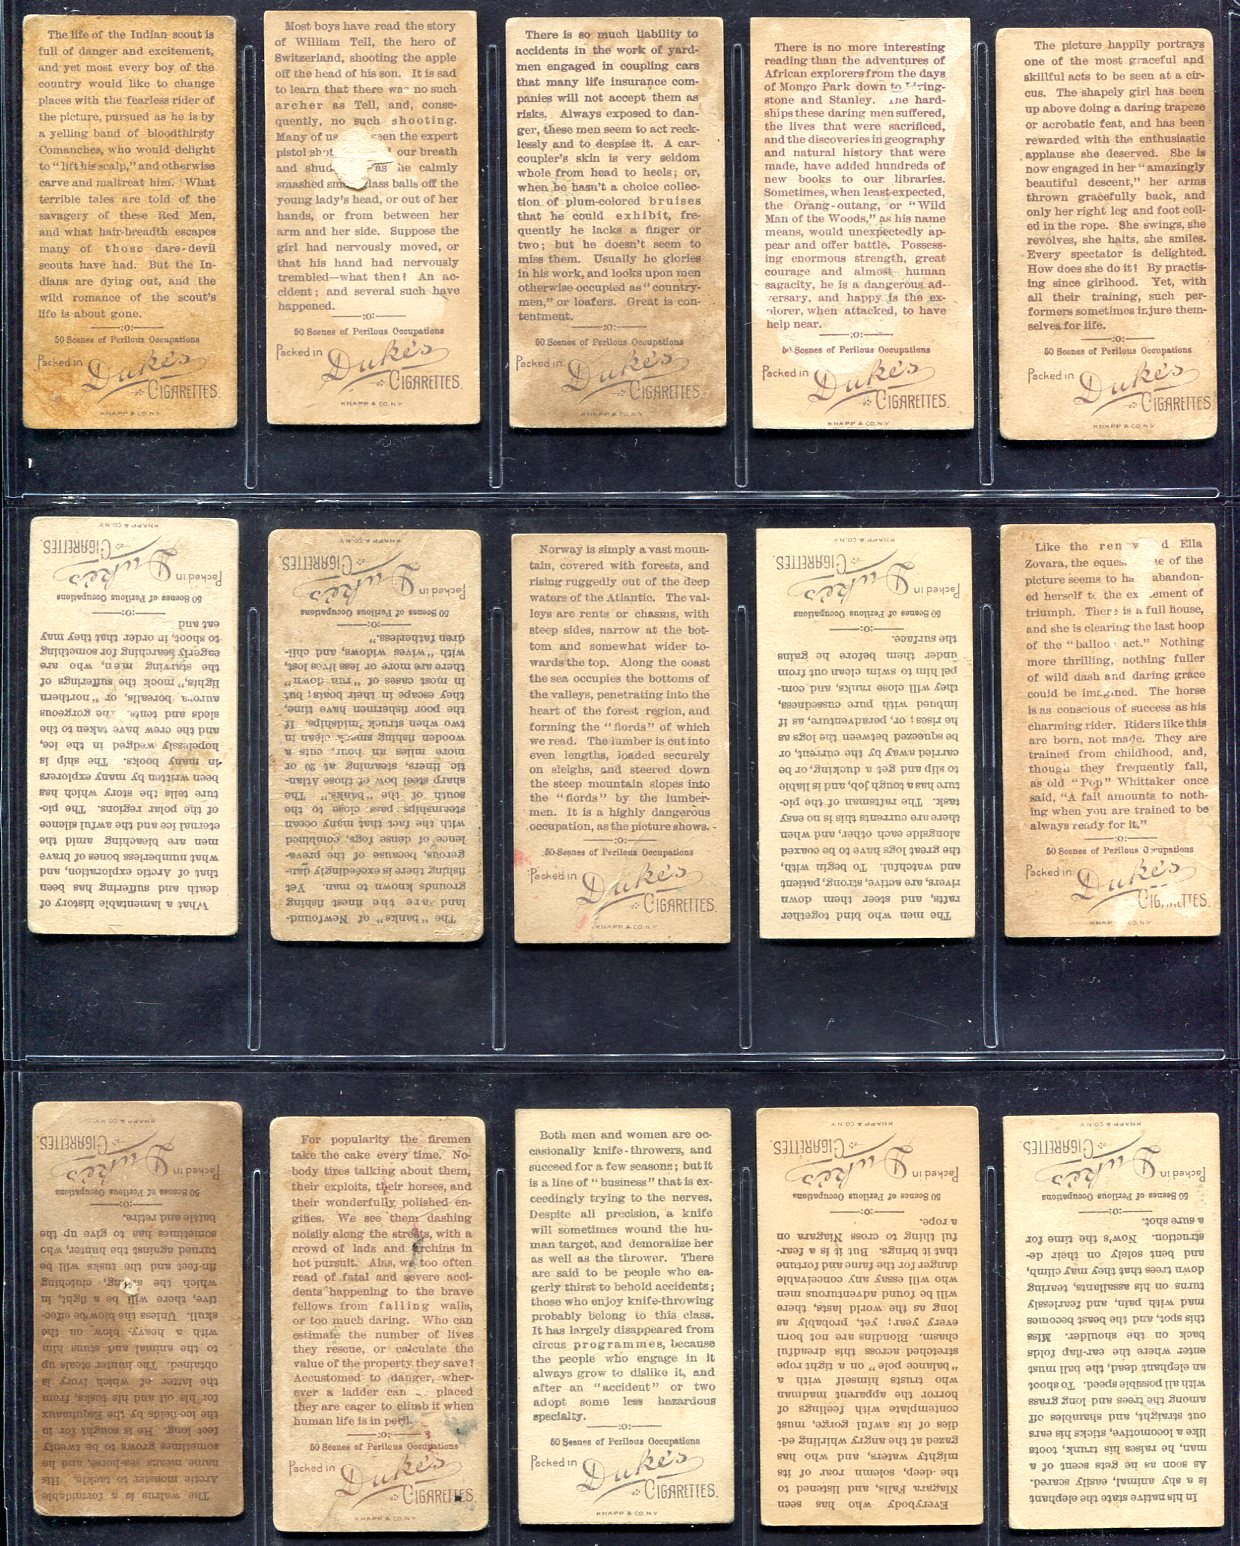 The life of the Indian scout is
full of danger and excitement,
and yet most every boy of the
country would like to change
places with the fearless rider of
the picture, pursued as he is by
a yelling band of bloodthirsty
Comanches, who would delight
to "lift his scalp," and otherwise
carve and maltreat him. What
terrible tales are told of the
savagery of these Red Men,
and what hair-breadth escapes
many of those dare-devil
scouts have had. But the In-
dians are dying out, and the
wild romance of the scout's
life is about gone.
:o:
50 Scenes of Perilous Occupations
Packed in Duke's
CIGARETTES.
KNAPP & CO. N.Y.
Most boys have read the story
of William Tell, the hero of
Switzerland, shooting the apple
off the head of his son. It is sad
to learn that there was no such
archer as Tell, and, conse-
quently, no such shooting.
Many of us seen the expert
pistol shot our breath
and as he calmly
smashed glass balls off the
young lady's head, or out of her
hands, or from between her
arm and her side. Suppose the
girl had nervously moved, or
that his hand had nervously
trembled—what then! An ac-
cident; and several such have
happened.
:o:
50 Scenes of Perilous Occupations
Packed in Duke's
CIGARETTES.
KNAPP & CO. N.Y.
There is so much liability to
accidents in the work of yard-
men engaged in coupling cars
that many life insurance com-
panies will not accept them as
risks. Always exposed to dan-
ger, these men seem to act reck-
lessly and to despise it. A car-
coupler's skin is very seldom
whole from head to heels; or,
when he hasn't a choice collec-
tion of plum-colored bruises
that he could exhibit, fre-
quently he lacks a finger or
two; but he doesn't seem to
miss them. Usually he glories
in his work, and looks upon men
otherwise occupied as "country-
men," or loafers. Great is con-
tentment.
:o:
50 Scenes of Perilous Occupations
Packed in Duke's
CIGARETTES.
KNAPP & CO. N.Y.
There is no more interesting
reading than the adventures of
African explorers from the days
of Mongo Park down to Living-
stone and Stanley. The hard-
ships these daring men suffered,
the lives that were sacrificed,
and the discoveries in geography
and natural history that were
made, have added hundreds of
new books to our libraries.
Sometimes, when least expected,
the Orang-outang, or "Wild
Man of the Woods," as his name
means, would unexpectedly ap-
pear and offer battle. Possess-
ing enormous strength, great
courage and almost human
sagacity, he is a dangerous ad-
versary, and happy is the ex-
plorer, when attacked, to have
help near.
:o:
50 Scenes of Perilous Occupations
Packed in Duke's
CIGARETTES.
KNAPP & CO. N.Y.
The picture happily portrays
one of the most graceful and
skillful acts to be seen at a cir-
cus. The shapely girl has been
up above doing a daring trapeze
or acrobatic feat, and has been
rewarded with the enthusiastic
applause she deserved. She is
now engaged in her "amazingly
beautiful descent," her arms
thrown gracefully back, and
only her right leg and foot coil-
ed in the rope. She swings, she
revolves, she halts, she smiles.
Every spectator is delighted.
How does she do it! By practis-
ing since girlhood. Yet, with
all their training, such per-
formers sometimes injure them-
selves for life.
:o:
50 Scenes of Perilous Occupations
Packed in Duke's
CIGARETTES.
KNAPP & CO. N.Y.
What a lamentable history of
death and suffering has been
that of Arctic exploration, and
what numberless bones of brave
men are bleaching amid the
eternal ice and the awful silence
of the polar regions. The pic-
ture tells the story which has
been written by many explorers
in many books. The ship is
hopelessly wedged in the ice,
and the crew have taken to the
sleds and tents. The gorgeous
aurora borealis, or "northern
lights," mock the sufferings of
the starving men, who are
eagerly searching for something
to shoot, in order that they may
eat and
:o:
50 Scenes of Perilous Occupations
Packed in Duke's
CIGARETTES.
KNAPP & CO. N.Y.
The "banks" of Newfound-
land are the finest fishing
grounds known to man. Yet
fishing there is exceedingly dan-
gerous, because of the preva-
lence of dense fogs, combined
with the fact that many ocean
steamships pass close to the
south of the "banks." The
sharp steel bow of those Atlan-
tic liners, steaming at 20 or
more miles an hour, cuts a
wooden fishing smack clean in
two when struck 'midships. If
the poor fishermen have time,
they escape in their boats; but
in most cases of "run down"
there are more or less lives lost,
with "wives widows, and chil-
dren fatherless."
:o:
50 Scenes of Perilous Occupations
Packed in Duke's
CIGARETTES.
KNAPP & CO. N.Y.
Norway is simply a vast moun-
tain, covered with forests, and
rising ruggedly out of the deep
waters of the Atlantic. The val-
leys are rents or chasms, with
steep sides, narrow at the bot-
tom and somewhat wider to-
wards the top. Along the coast
the sea occupies the bottoms of
the valleys, penetrating into the
heart of the forest region, and
forming the "fiords" of which
we read. The lumber is cut into
even lengths, loaded securely
on sleighs, and steered down
the steep mountain slopes into
the "fiords" by the lumber-
men. It is a highly dangerous
occupation, as the picture shows.
:o:
50 Scenes of Perilous Occupations
Packed in Duke's
CIGARETTES.
KNAPP & CO. N.Y.
The men who bind together
rafts, and steer them down
rivers, are active, strong, patient
and watchful. To begin with,
the great logs have to be coaxed
alongside each other, and when
there are currents this is no easy
task. The raftsman of the pic-
ture has a tough job, and is liable
to slip and get a ducking, or be
carried away by the current, or
be squeezed between the logs as
he rises; or, peradventure, as if
imbued with pure cussedness,
they will close ranks, and com-
pel him to swim clean out from
under them before he gains
the surface.
:o:
50 Scenes of Perilous Occupations
Packed in Duke's
CIGARETTES.
KNAPP & CO. N.Y.
Like the Ella
Zovara, the of the
picture seems to abandon-
ed herself to the excitement of
triumph. There is a full house,
and she is clearing the last hoop
of the "balloon act." Nothing
more thrilling, nothing fuller
of wild dash and daring grace
could be imagined. The horse
is as conscious of success as his
charming rider. Riders like this
are born, not made. They are
trained from childhood, and,
though they frequently fall,
as old "Pop" Whittaker once
said, "A fall amounts to noth-
ing when you are trained to be
always ready for it."
:o:
50 Scenes of Perilous Occupations
Packed in Duke's
CIGARETTES.
KNAPP & CO. N.Y.
The walrus is a formidable
Arctic monster to tackle. His
name means sea-horse, and he
sometimes grows to be twenty
feet long. He is sought for in
the ice-fields by the Esquimaux
for his oil and his tusks, from
the latter of which ivory is
obtained. The hunter steals up
to the animal and stuns him
with a heavy blow on the
skull. Unless the blow be effec-
tive, there will be a fight, in
which the strong, clutching
fin-feet and the tusks will be
turned against the hunter, who
sometimes has to give up the
battle and retire.
:o:
50 Scenes of Perilous Occupations
Packed in Duke's
CIGARETTES.
KNAPP & CO. N.Y.
For popularity the firemen
take the cake every time. No-
body tires talking about them,
their exploits, their horses, and
their wonderfully polished en-
gines. We see them dashing
noisily along the streets, with a
crowd of lads and urchins in
hot pursuit. Alas, we too often
read of fatal and severe acci-
dents happening to the brave
fellows from falling walls,
or too much daring. Who can
estimate the number of lives
they rescue, or calculate the
value of the property they save!
Accustomed to danger, wher-
ever a ladder can placed
they are eager to climb it when
human life is in peril.
:o:
50 Scenes of Perilous Occupations
Packed in Duke's
CIGARETTES.
KNAPP & CO. N.Y.
Both men and women are oc-
casionally knife-throwers, and
succeed for a few seasons; but it
is a line of "business" that is ex-
ceedingly trying to the nerves.
Despite all precision, a knife
will sometimes wound the hu-
man target, and demoralize her
as well as the thrower. There
are said to be people who ea-
gerly thirst to behold accidents;
those who enjoy knife-throwing
probably belong to this class.
It has largely disappeared from
circus programmes, because
the people who engage in it
always grow to dislike it, and
after an "accident" or two
adopt some less hazardous
specialty.
:o:
50 Scenes of Perilous Occupations
Packed in Duke's
CIGARETTES.
KNAPP & CO. N.Y.
Everybody who has seen
Niagara Falls, and listened to
the deep, solemn roar of its
mighty waters, and who has
gazed at the angry whirling ed-
dies of its awful gorge, must
contemplate with feelings of
horror the apparent madman
who trusts himself with a
"balance pole" on a tight rope
stretched across this dreadful
chasm. Blondins are not born
every year; yet, probably as
long as the world lasts, there
will be found adventurous men
who will essay any conceivable
danger for the fame and fortune
that it brings. But it is a fear-
ful thing to cross Niagara on
a rope.
:o:
50 Scenes of Perilous Occupations
Packed in Duke's
CIGARETTES.
KNAPP & CO. N.Y.
In his native state the elephant
is a shy animal, easily scared.
As soon as he gets scent of a
man, he raises his trunk, toots
like a locomotive, sticks his ears
out straight, and shambles off
among the trees and long grass
with all possible speed. To shoot
an elephant dead, the ball must
enter where the ear-flap folds
back on the shoulder. Miss
this spot, and the beast becomes
mad with pain, and fearlessly
turns on his assailants, tearing
down trees that they may climb,
and bent solely on their de-
struction. Now's the time for
a sure shot.
:o:
50 Scenes of Perilous Occupations
Packed in Duke's
CIGARETTES.
KNAPP & CO. N.Y.